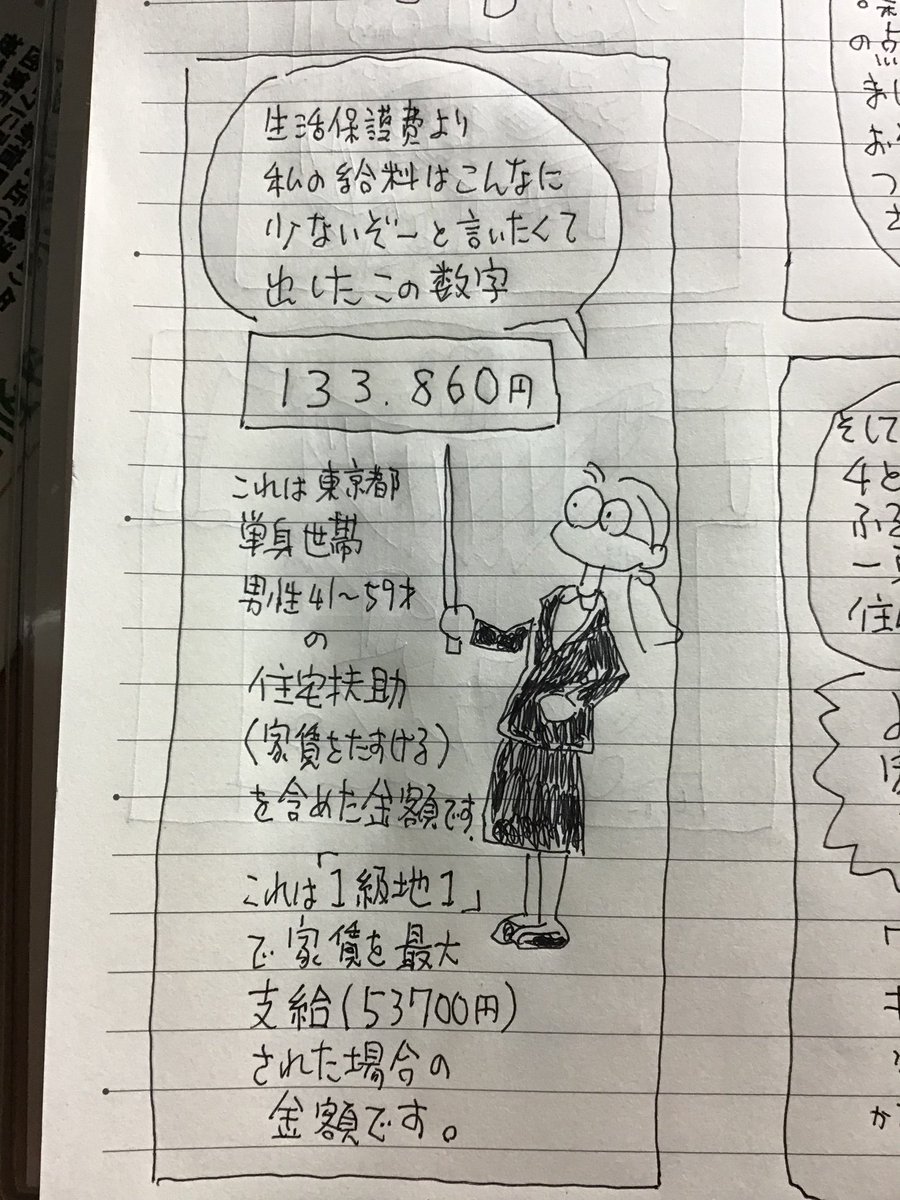 生活保護費より
私の給料はこんなに
少ないぞーと言いたくて
出したこの数字
133.860円
これは東京都
単身世帯
男性41～59才
の
住宅扶助
(家賃をたすける)
を含めた金額です.
これは「1級地1」
で家賃を最大
支給(53700円)
された場合の
金額です。
の点
まし
つ
さ
そして
4と
ふる
一
住